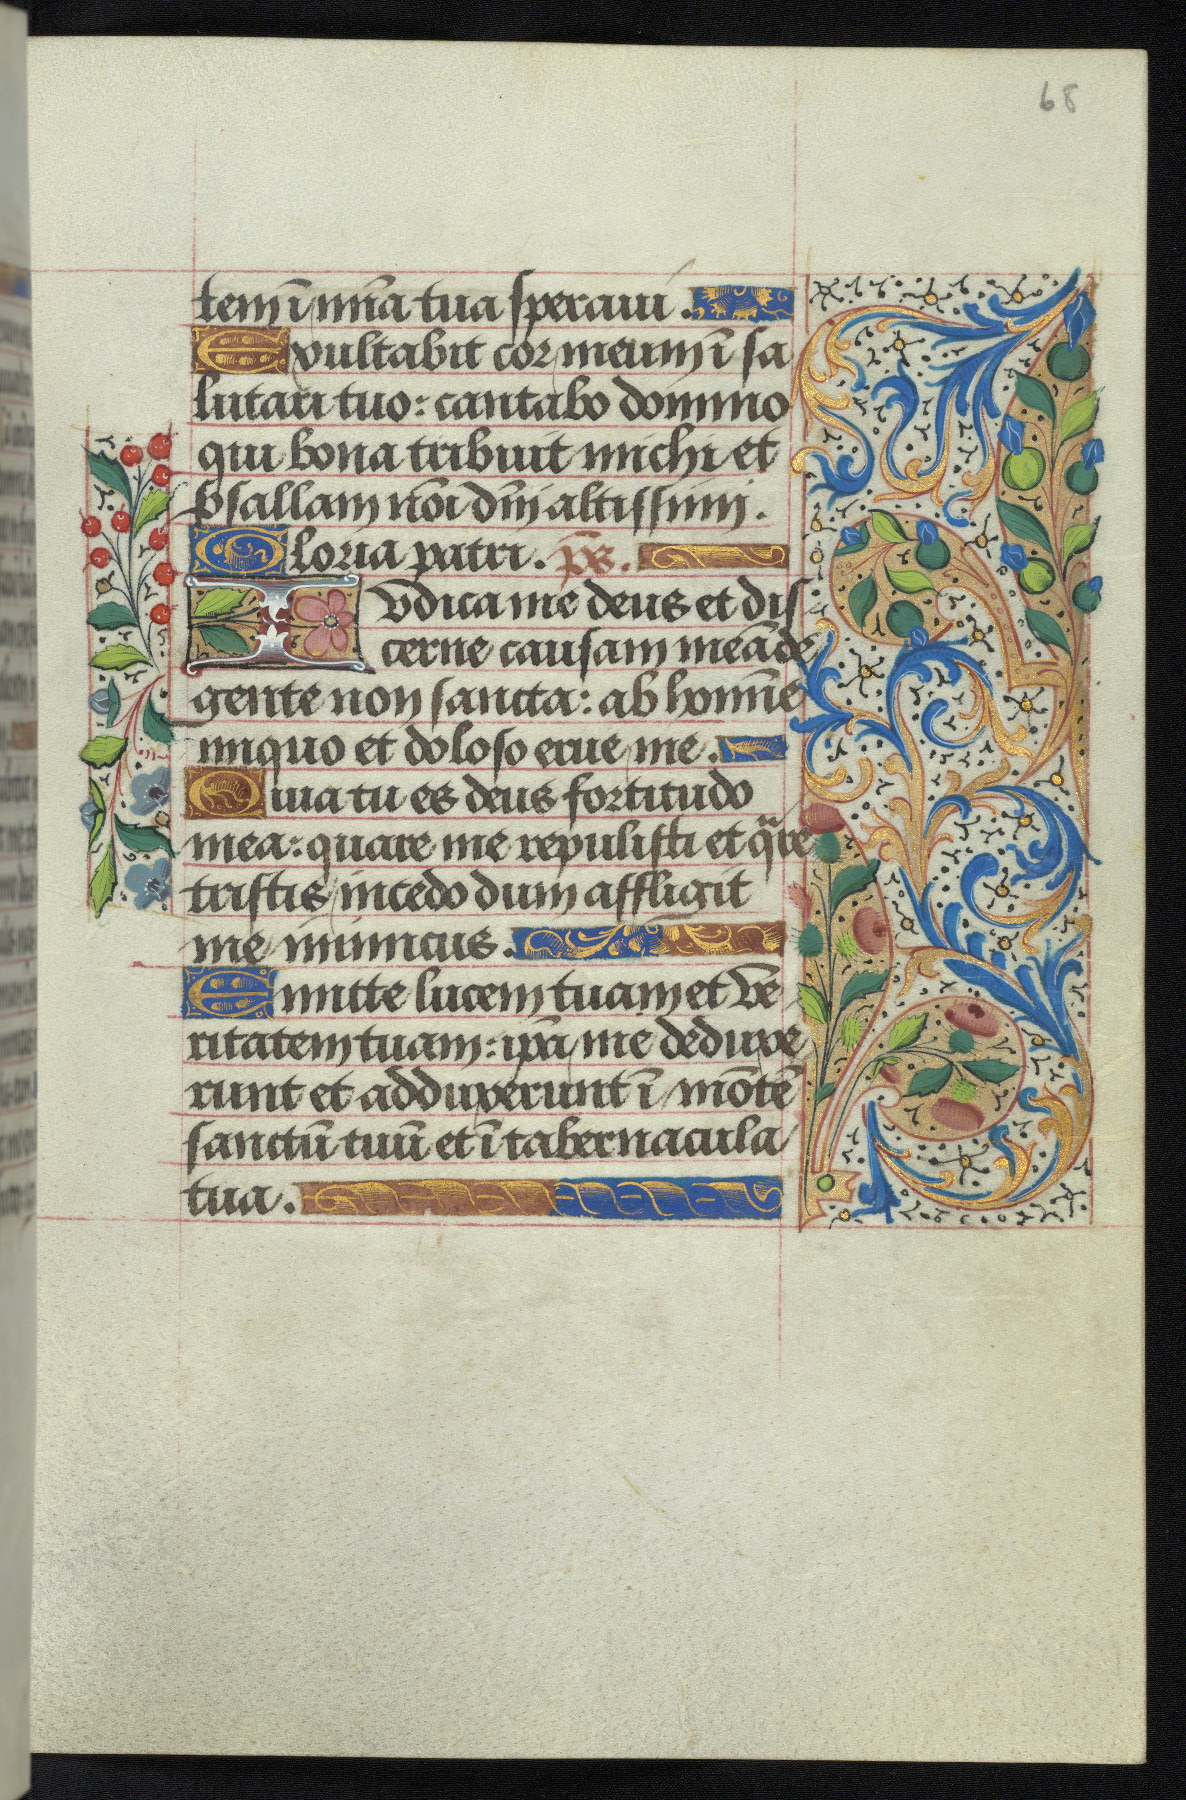 68
tem ī mīa tua speraui.
Exultabit cor meum ī sa
lutari tuo: cantabo domino
qui bona tribuit michi et
psallam nōi dm̄ altissimi.
Gloria patri. ps̄.
Iudica me deus et dis
cerne causam meā de
gente non sancta: ab homīe
iniquo et doloso erue me.
Quia tu es deus fortitudo
mea: quare me repulisti et qͣre
tristis incedo dum affligit
me inimicus.
Emitte lucem tuam et ve
ritatem tuam: ip̄a me deduxe
runt et adduxerunt ī mōtē
sanctū tuū et ī tabernacula
tua.